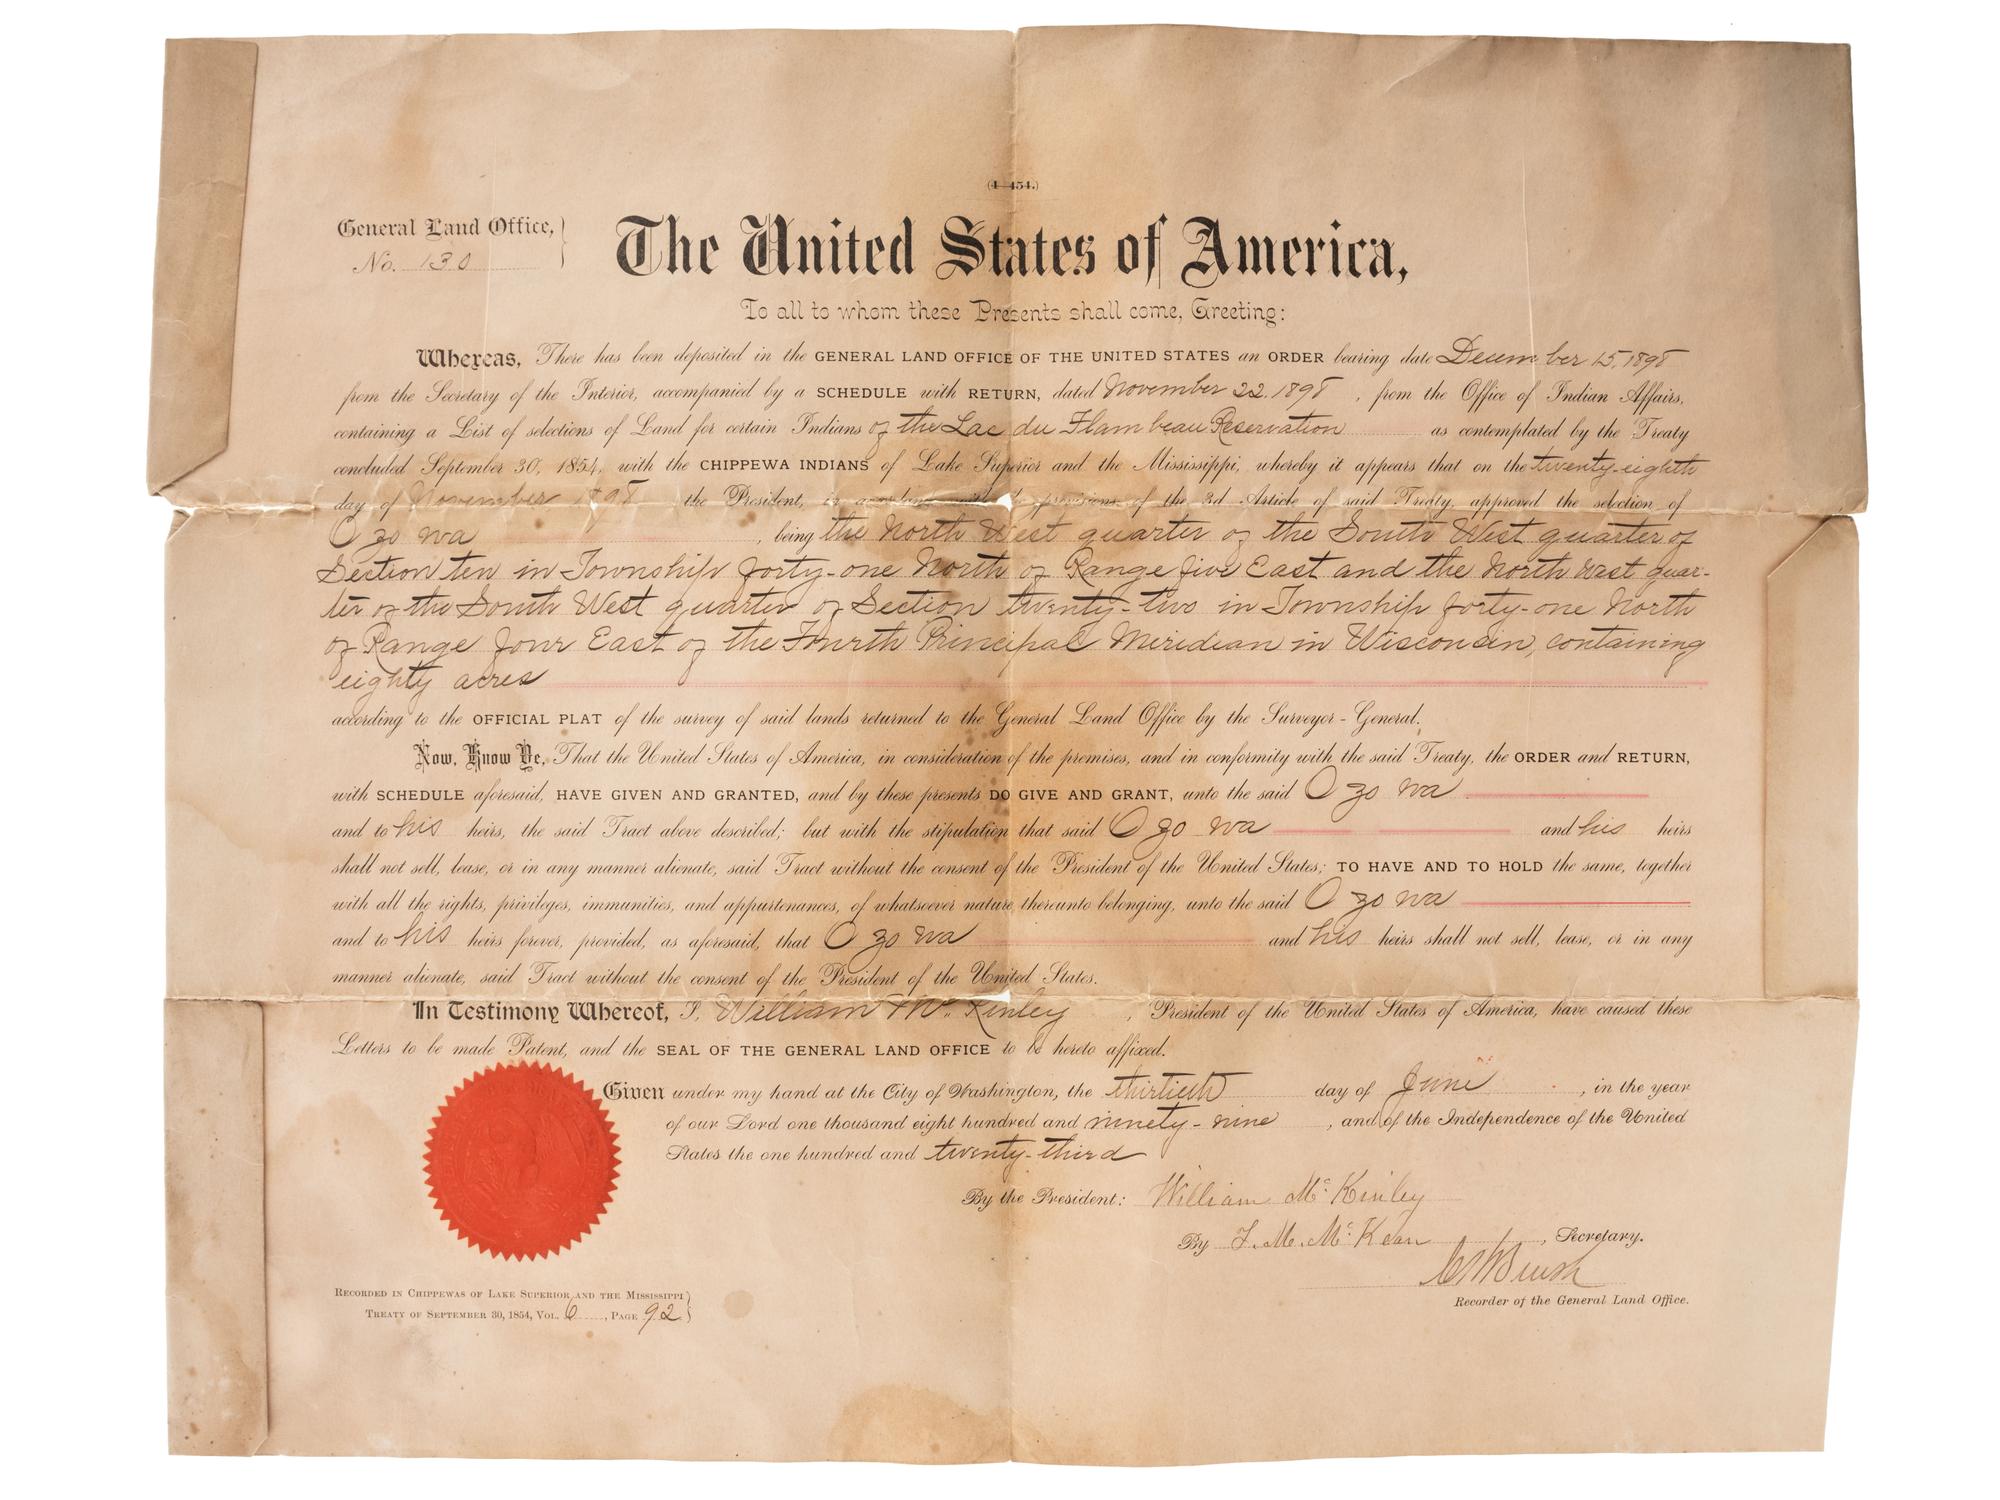 (4—454.)
General Land Office,
No. 130
The United States of America,
To all to whom these Presents shall come, Greeting:
Whereas, There has been deposited in the GENERAL LAND OFFICE OF THE UNITED STATES an ORDER bearing date December 15, 1898
from the Secretary of the Interior, accompanied by a SCHEDULE with RETURN, dated November 22, 1898, from the Office of Indian Affairs,
containing a List of selections of Land for certain Indians of the Lac du Flambeau Reservation as contemplated by the Treaty
concluded September 30, 1854, with the CHIPPEWA INDIANS of Lake Superior and the Mississippi, whereby it appears that on the twenty-eighth
day of November 1898 the President, in accordance with the provisions of the 3d Article of said Treaty, approved the selection of
O zo wa, being the North West quarter of the South West quarter of
Section ten in Township forty-one North of Range five East and the North West quar-
ter of the South West quarter of Section twenty-two in Township forty-one North
of Range four East of the Fourth Principal Meridian in Wisconsin, containing
eighty acres
according to the OFFICIAL PLAT of the survey of said lands returned to the General Land Office by the Surveyor-General.
Now, Know Ye, That the United States of America, in consideration of the premises, and in conformity with the said Treaty, the ORDER and RETURN,
with SCHEDULE aforesaid, HAVE GIVEN AND GRANTED, and by these presents DO GIVE AND GRANT, unto the said O zo wa
and to his heirs, the said Tract above described; but with the stipulation that said O zo wa and his heirs
shall not sell, lease, or in any manner alienate, said Tract without the consent of the President of the United States; TO HAVE AND TO HOLD the same, together
with all the rights, privileges, immunities, and appurtenances, of whatsoever nature, thereunto belonging, unto the said O zo wa
and to his heirs forever, provided, as aforesaid, that O zo wa and his heirs shall not sell, lease, or in any
manner alienate, said Tract without the consent of the President of the United States.
In Testimony Whereof, I, William McKinley, President of the United States of America, have caused these
Letters to be made Patent, and the SEAL OF THE GENERAL LAND OFFICE to be hereto affixed.
Given under my hand at the City of Washington, the thirtieth day of June, in the year
of our Lord one thousand eight hundred and ninety-nine, and of the Independence of the United
States the one hundred and twenty-third
By the President: William McKinley
By F. M. McKean, Secretary.
C H Brush
Recorder of the General Land Office.
RECORDED IN CHIPPEWAS OF LAKE SUPERIOR AND THE MISSISSIPPI
TREATY OF SEPTEMBER 30, 1854, VOL. 6, PAGE 92